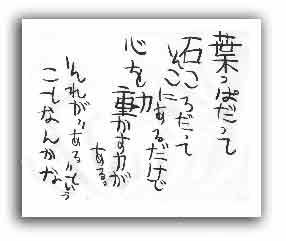 葉っぱだって
石ころだって
そこにあるだけで
心を動かす力が
ある。
それが"ある"という
ことなんかな